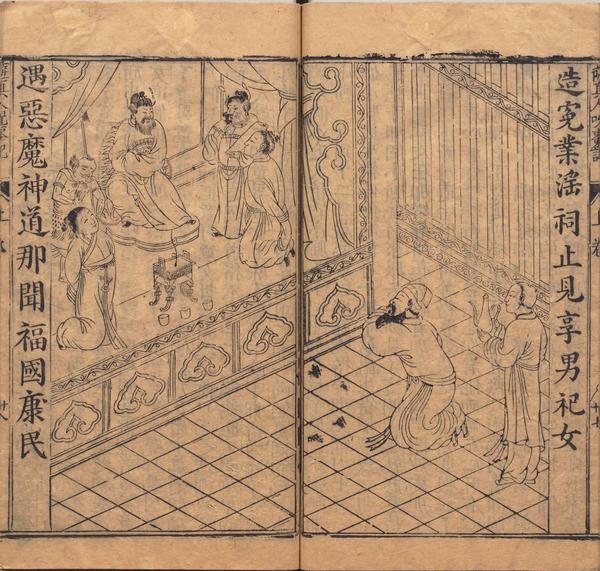 造寃業滛祠止見享男祀女
遇惡魔神道那聞福國康民
廿八